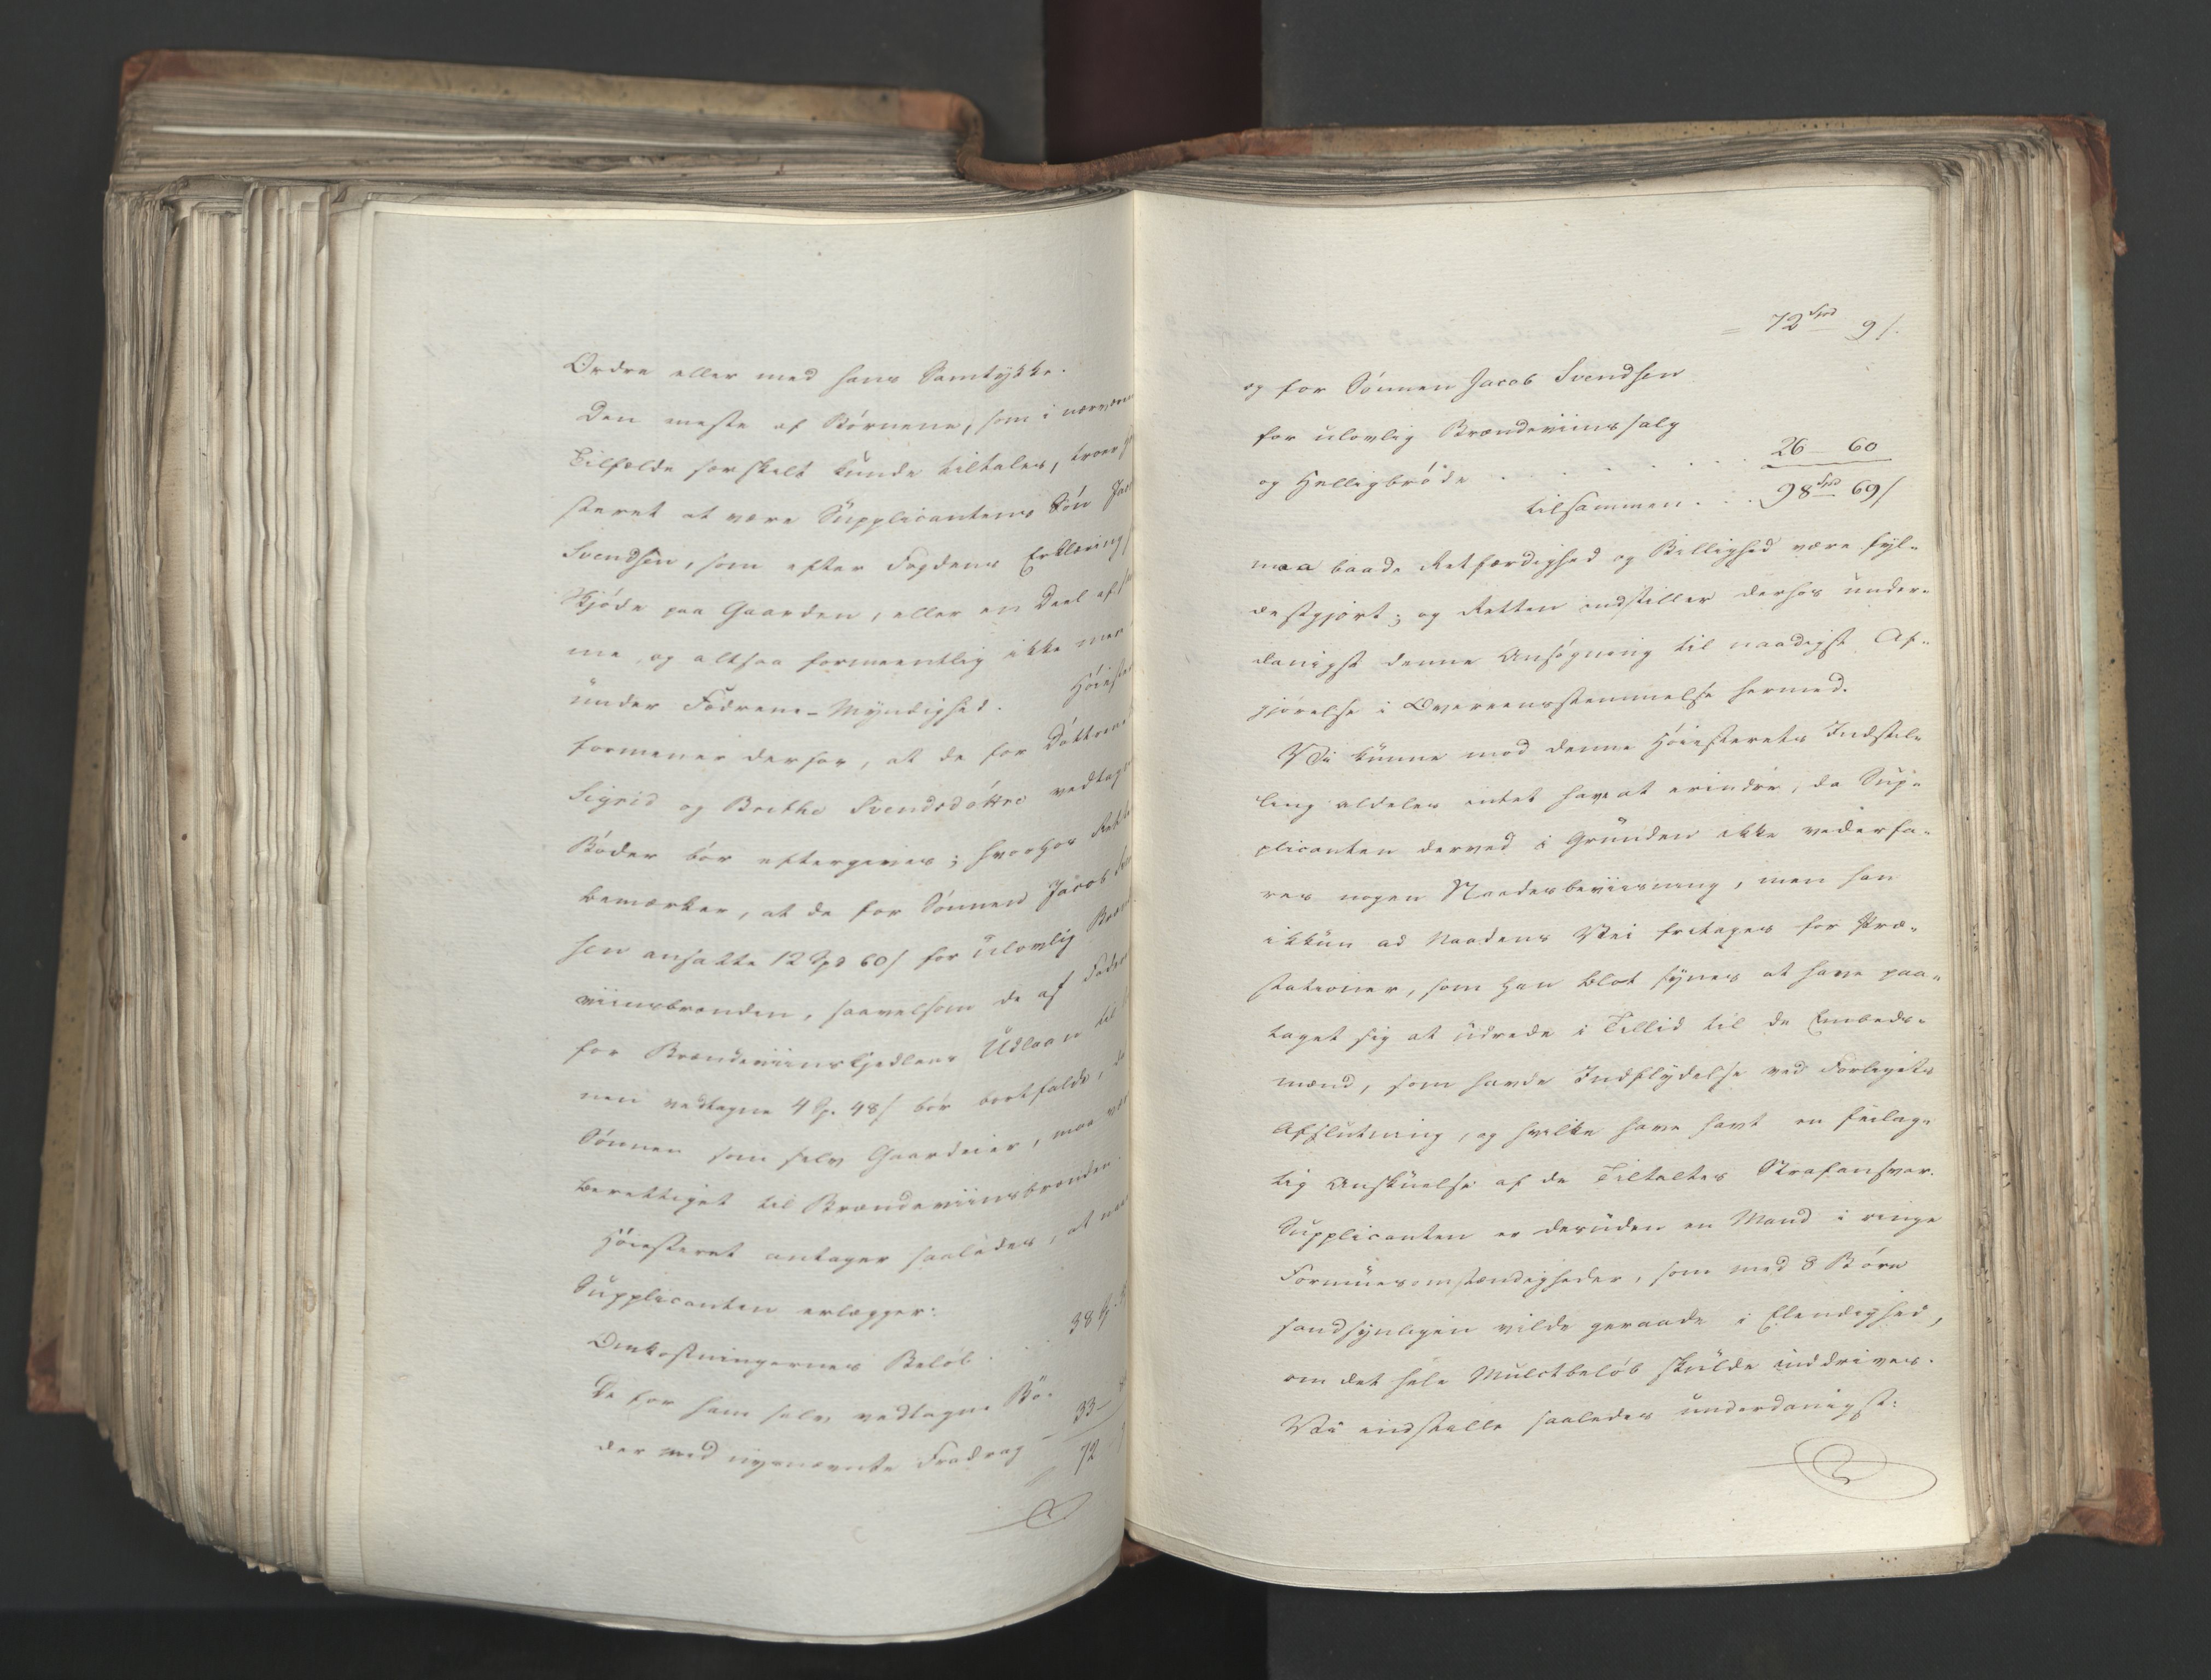 Ordre eller med hans Samtykke.
Den meste af Börnene, som i nærværen
Tilfælde særskilt kunde tiltales, troer H
steret at være Supplicantens Sön Jac
Svendsen, som efter Fogdens Erklæring
Skjöde paa Gaarden, eller en Deel af
me, og altsaa formeentlig ikke mer
under Fädrene-Myndighed. Höiest
formener derfor, at de for Döttrene
Sigrid og Brithe Svendsdöttre vedtag
Böder bör eftergives; hvorhos Rett
bemærker, at de for Sönnen Jacob Sven
sen ansatte 12 Spd 60 s for ulovlig Brænd
viinsbrænden, saavelsom de af Fader
for Brændeviinskjedlens Udlaan til
nen vedtagne 4 Sp. 48 s bör bortfalde,
Sönnen som selv Gaardeier, maa vær
berettiget til Brændeviinsbrænden.
Höiesteret antager saaledes, at naar
Supplicanten erlægger:
Omkostningernes Belöb . . . 38 Sp.
De for ham selv vedtagne Bö-
der med nysnævnte Fradrag - 33 -
72
= 72 Spd 9 s.
og for Sönnen Jacob Svendsen
for ulovlig Brændeviinssalg
og Helligbröde . . . . . . 26 - 60
tilsammen . . . 98 Spd 69 s
maa baade Retfærdighed og Billighed være fyl-
destgjort; og Retten indstiller derhos under-
danigst denne Ansögning til naadigst Af-
gjörelse i Overeensstemmelse hermed.
Vi kunne mod denne Höiesterets Indstil-
ling aldeles intet have at erindre, da Sup-
plicanten derved i Grunden ikke vederfa-
res nogen Naadesbeviisning, men han
ikkun ad Naadens Vei fritages for Præ-
stationer, som han blot synes at have paa-
taget sig at udrede i Tillid til de Embeds-
mænd, som havde Indflydelse ved Forligets
Afslutning, og hvilke have havt en feilag-
tig Anskuelse af de Tiltaltes Strafansvar.
Supplicanten er desuden en Mand i ringe
Formuesomstændigheder, som med 8 Börn
sandsynligen vilde geraade i Elendighed,
om det hele Mulctbelöb skulde inddrives.
Vi indstille saaledes underdanigst: